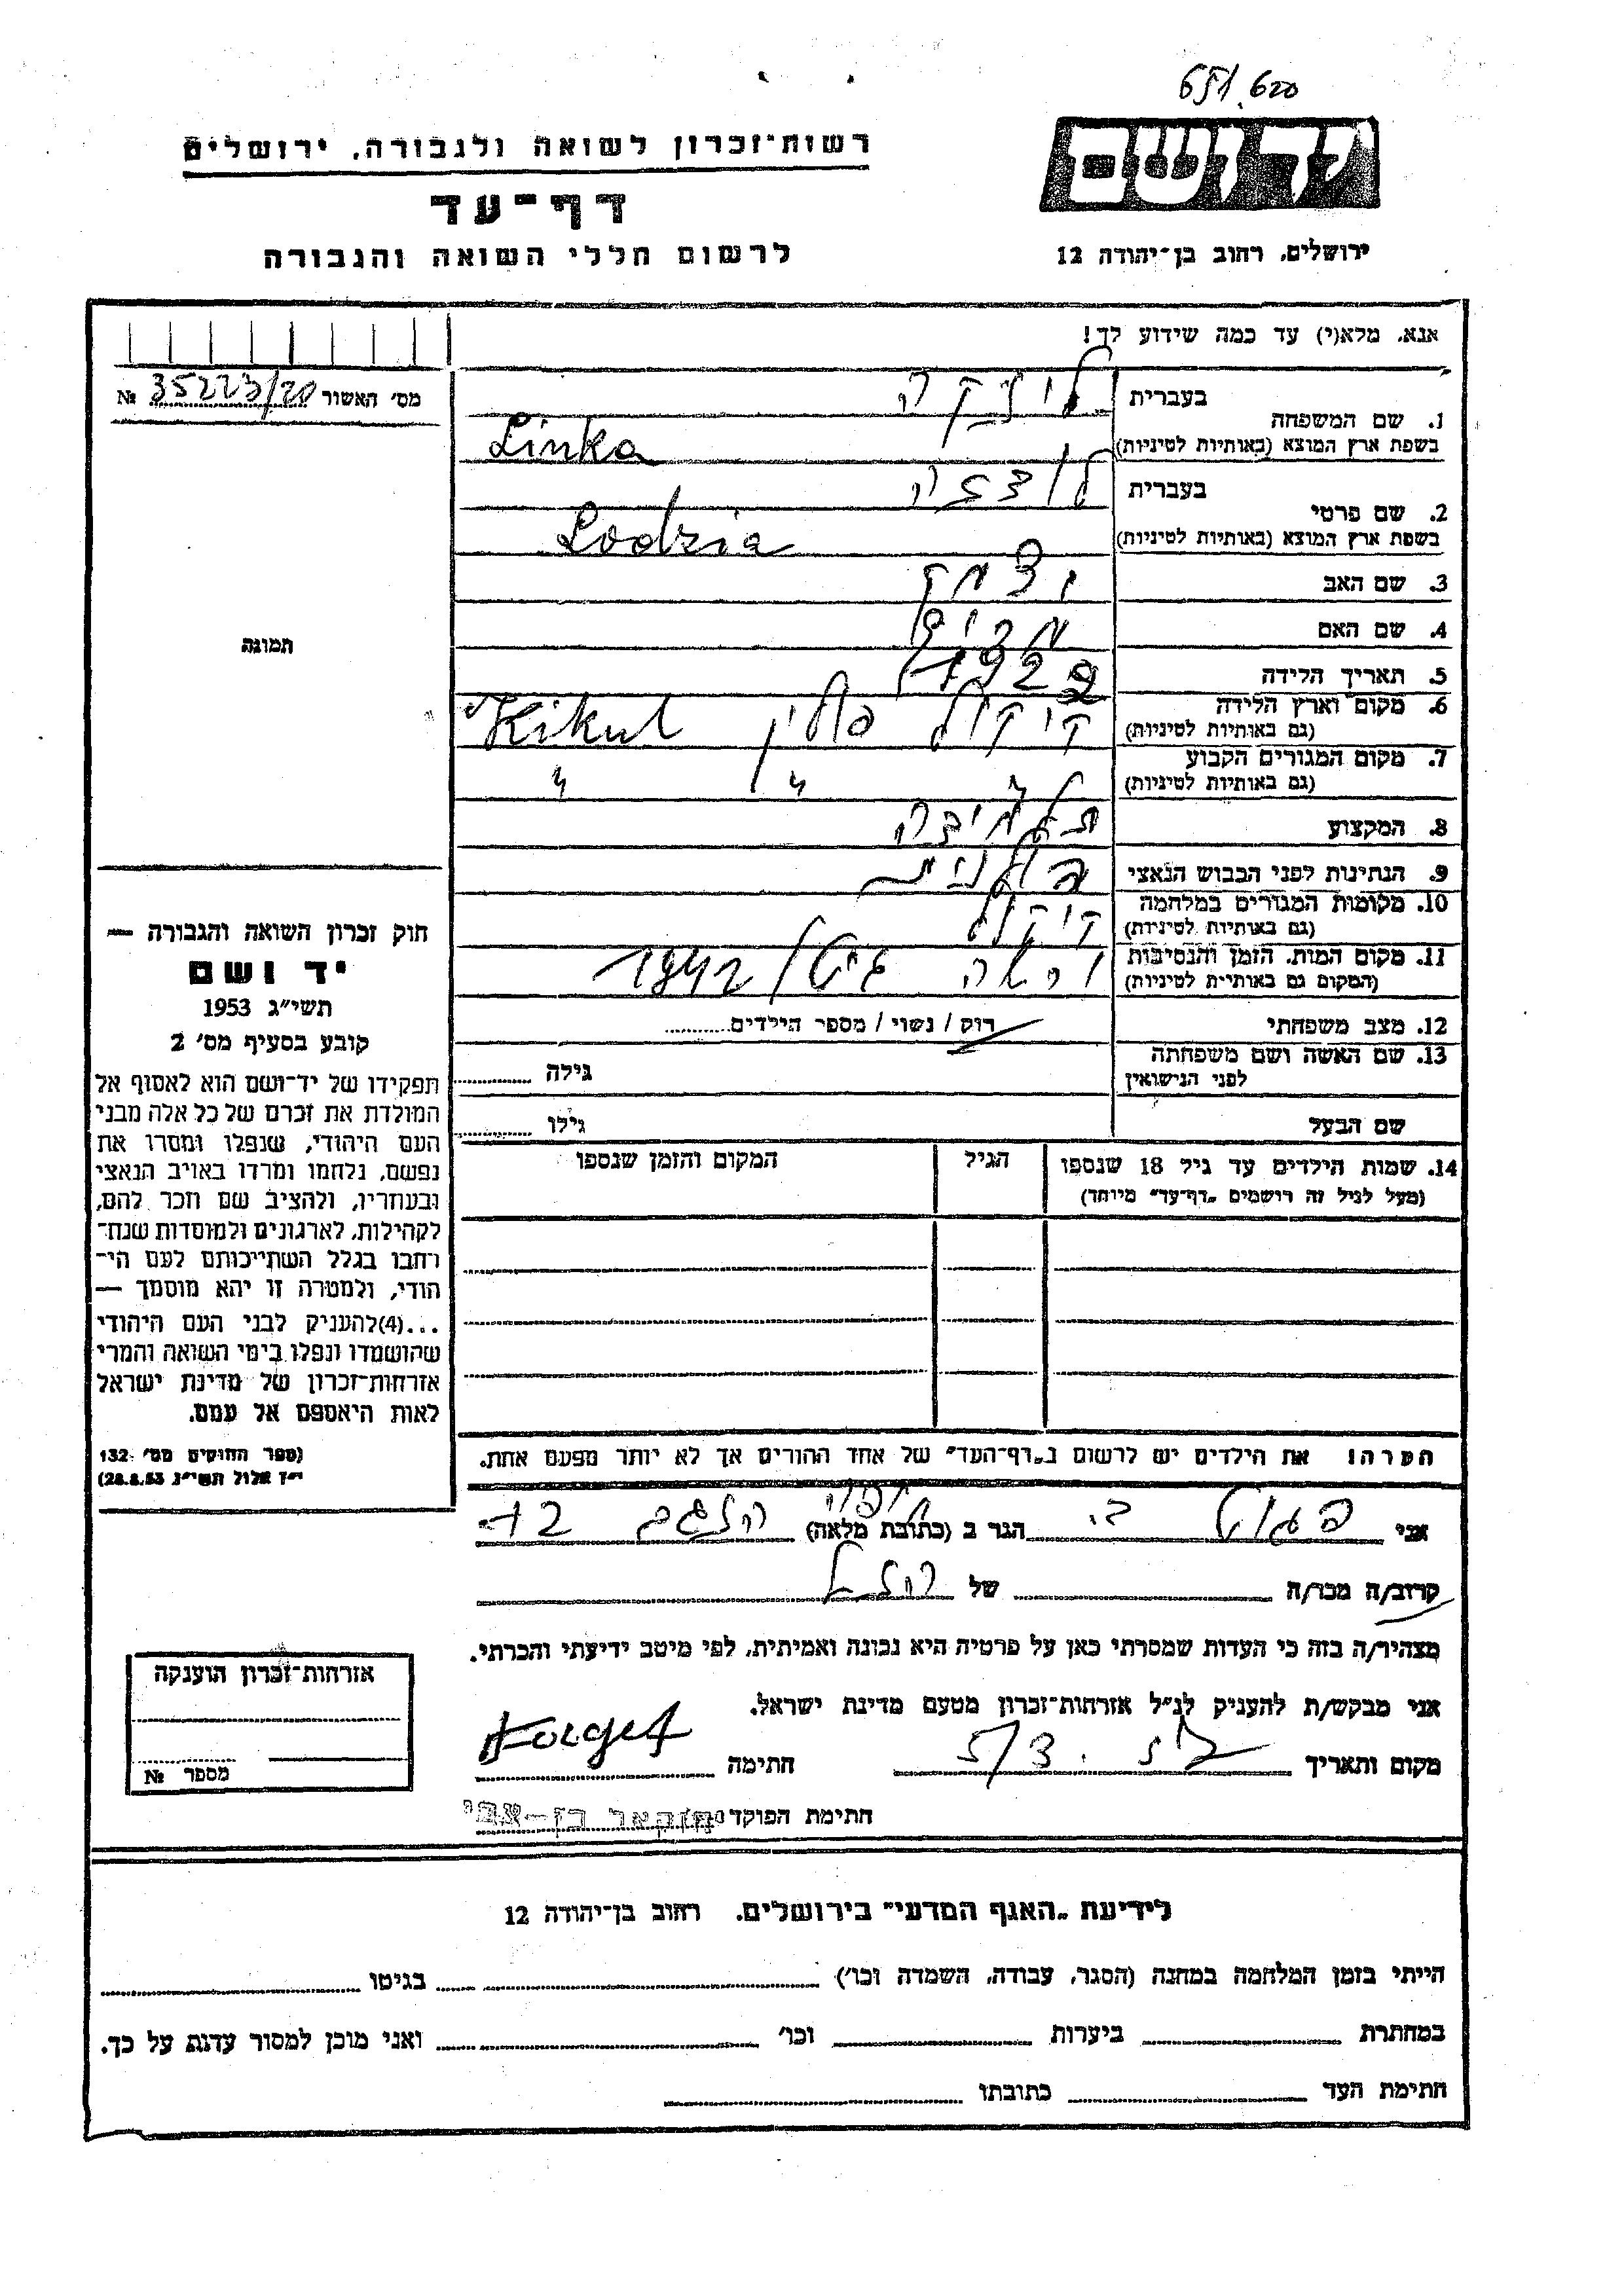 651.620
יד ושם
רשות־זכרון לשואה ולגבורה, ירושלים
דף־עד
לרשום חללי השואה והגבורה
ירושלים, רחוב בן־יהודה 12
אנא, מלא(י) עד כמה שידוע לך!
מס׳ האשור 35223/20 №
תמונה
1. שם המשפחה
בעברית לינקה
בשפת ארץ המוצא (באותיות לטיניות) Linka
2. שם פרטי
בעברית לודזה
בשפת ארץ המוצא (באותיות לטיניות) Lodzia
3. שם האב
4. שם האם
5. תאריך הלידה 1922
6. מקום וארץ הלידה
(גם באותיות לטיניות) קיקול פולין Kikul
7. מקום המגורים הקבוע
(גם באותיות לטיניות) " "
8. המקצוע תלמידה
9. הנתינות לפני הכבוש הנאצי פולנית
10. מקומות המגורים במלחמה
(גם באותיות לטיניות) קיקול
11. מקום המות, הזמן והנסיבות
(המקום גם באותיית לטיניות) גיטו 1942
12. מצב משפחתי רוק / נשוי / מספר הילדים
13. שם האשה ושם משפחתה
לפני הנישואין גילה
שם הבעל גילו
14. שמות הילדים עד גיל 18 שנספו
(מעל לגיל זה רושמים „דף־עד" מיוחד)
הגיל
המקום והזמן שנספו
חוק זכרון השואה והגבורה —
יד ושם
תשי״ג 1953
קובע בסעיף מס׳ 2
תפקידו של יד־ושם הוא לאסוף אל
המולדת את זכרם של כל אלה מבני
העם היהודי, שנפלו ומסרו את
נפשם, נלחמו ומרדו באויב הנאצי
ובעוזריו, ולהציב שם וזכר להם,
לקהילות, לארגונים ולמוסדות שנח־
רחבו בגלל השתייכותם לעם הי־
הודי, ולמטרה זו יהא מוסמך —
...(4)להעניק לבני העם היהודי
שהושמדו ונפלו בימי השואה והמרי
אזרחות־זכרון של מדינת ישראל
לאות היאספם אל עמם.
(ספר החוקים מס׳ 132
י״ז אלול תשי״ג 28.8.53)
הערה: את הילדים יש לרשום ב„דף־העד" של אחד ההורים אך לא יותר מפעם אחת.
אני הגר ב (כתובת מלאה) חיפה
קרוב/ה מכר/ה של
מצהיר/ה בזה כי העדות שמסרתי כאן על פרטיה היא נכונה ואמיתית, לפי מיטב ידיעתי והכרתי.
אני מבקש/ת להעניק לנ״ל אזרחות־זכרון מטעם מדינת ישראל.
מקום ותאריך חתימה
חתימת הפוקד
אזרחות־זכרון הוענקה
מספר №
לידיעת „האגף המדעי" בירושלים, רחוב בן־יהודה 12
הייתי בזמן המלחמה במחנה (הסגר, עבודה, השמדה וכו׳) בגיטו
במחתרת ביערות וכו׳ ואני מוכן למסור עדות על כך.
חתימת העד כתובתו